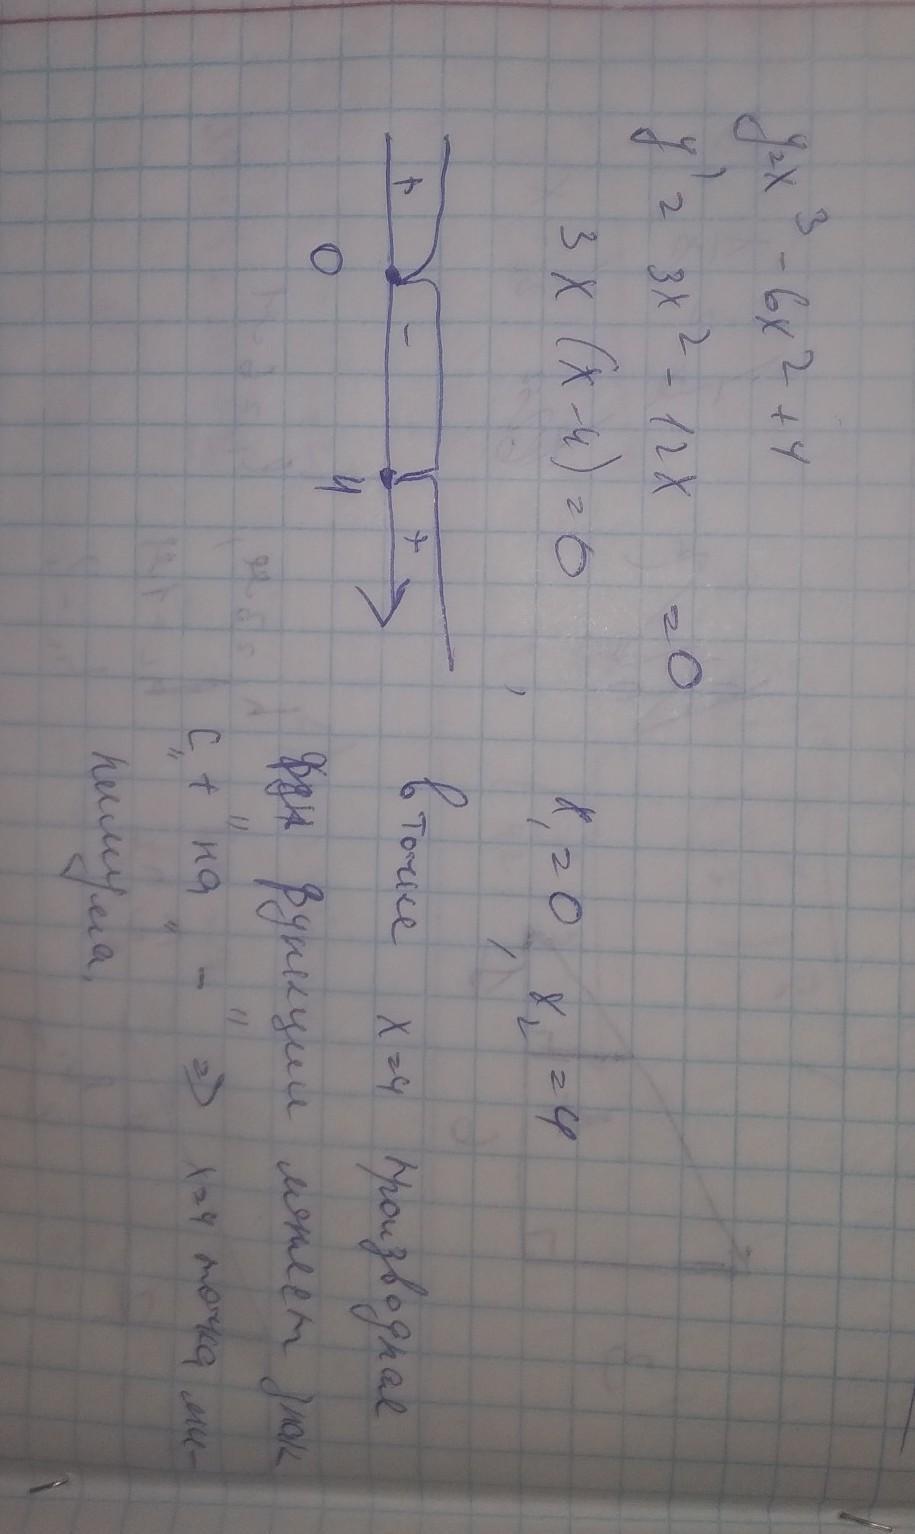 y=x³ - 6x² + 4
y' = 3x² - 12x = 0
3x (x - 4) = 0, x₁ = 0, x₂ = 4
+ - +
0 4
в точке x=4 производная
функции меняет знак
с „+" на „-" => x=4 точка ми-
нимума.